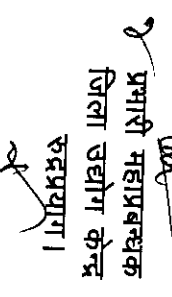 प्रभारी महाप्रबन्धक
जिला उद्योग केन्द्र
रूद्रप्रयाग।